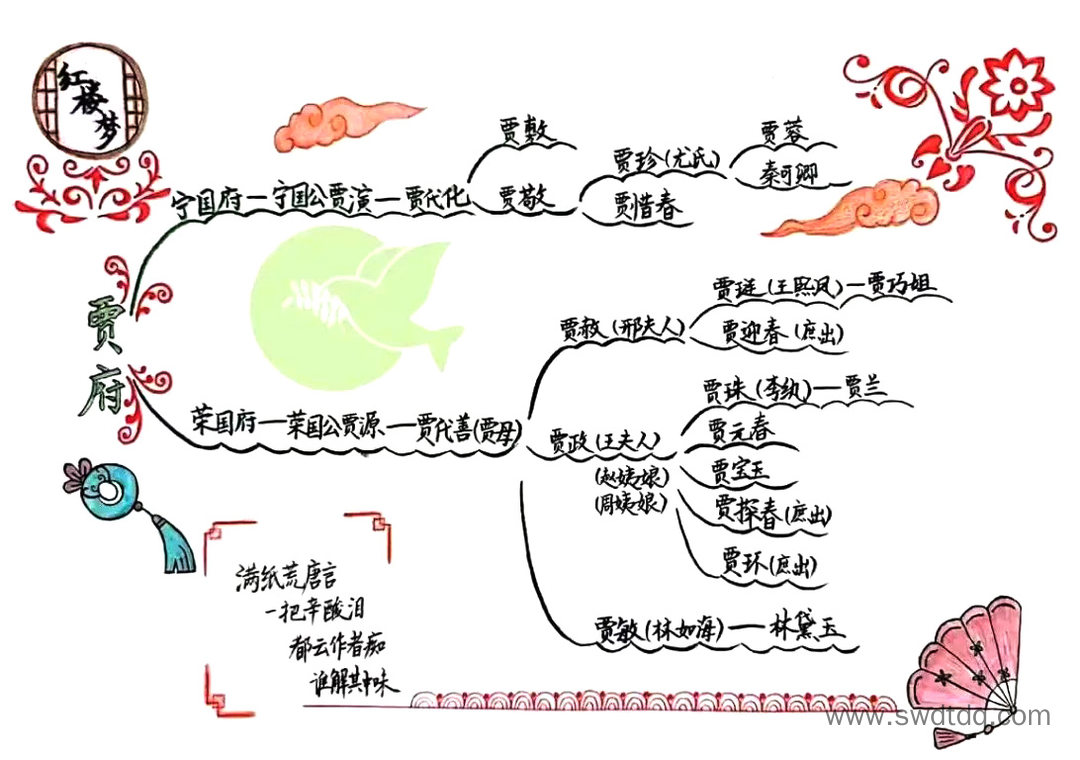 红楼梦
贾府
宁国府—宁国公贾演—贾代化
贾敷
贾敬
贾珍(尤氏)
贾惜春
贾蓉
秦可卿
荣国府—荣国公贾源—贾代善(贾母)
贾赦(邢夫人)
贾琏(王熙凤)—贾巧姐
贾迎春(庶出)
贾政(王夫人)
(赵姨娘)
(周姨娘)
贾珠(李纨)—贾兰
贾元春
贾宝玉
贾探春(庶出)
贾环(庶出)
贾敏(林如海)—林黛玉
满纸荒唐言
一把辛酸泪
都云作者痴
谁解其中味
www.swdtdq.com